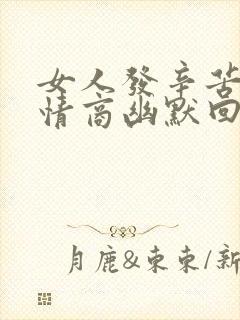 女人發辛苦
情商幽默回
月鹿&東東/新